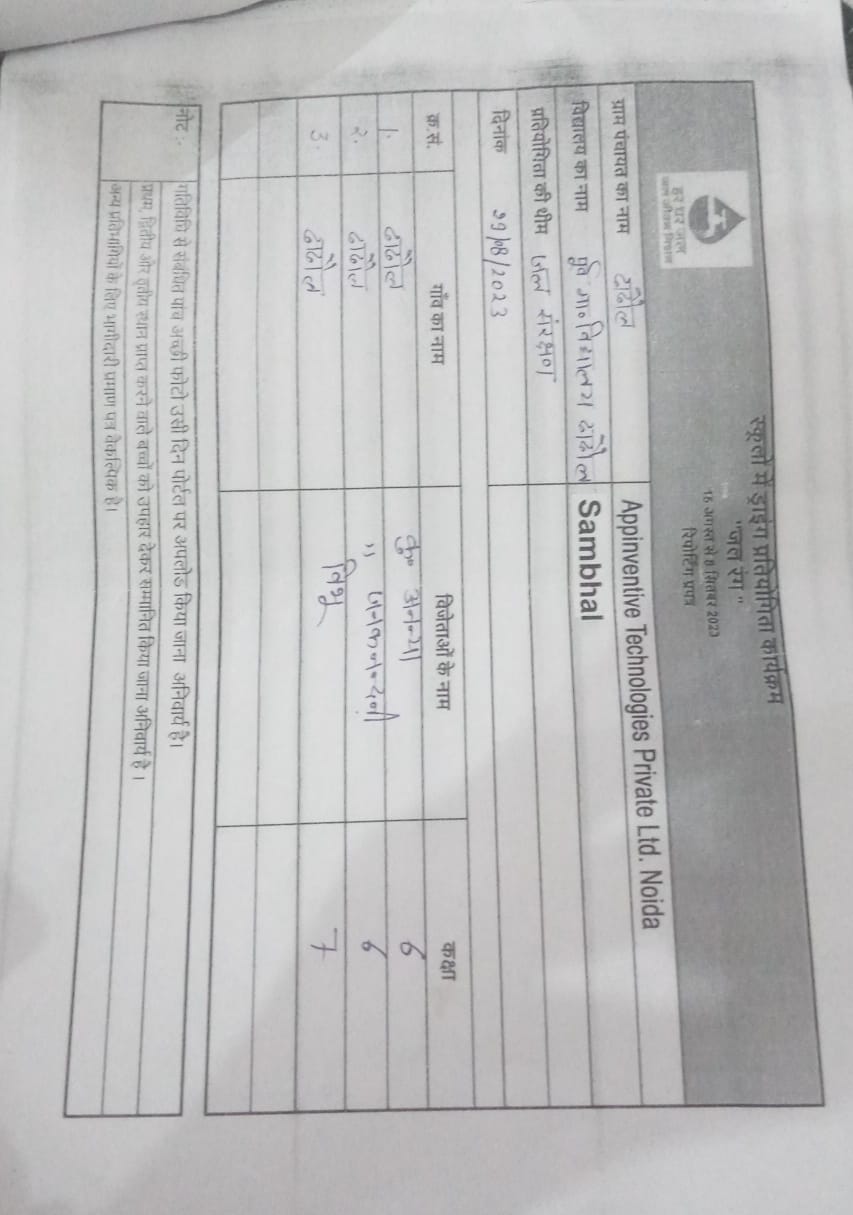 स्कूलों में ड्राइंग प्रतियोगिता कार्यक्रम
"जल रंग"
16 अगस्त से 8 सितंबर 2023
रिपोर्टिंग प्रपत्र
हर घर जल
जल जीवन मिशन
ग्राम पंचायत का नाम Appinventive Technologies Private Ltd. Noida
विद्यालय का नाम पूर्व मा० विद्यालय Sambhal
प्रतियोगिता की थीम जल संरक्षण
दिनांक 29/08/2023
क्र.सं. गाँव का नाम विजेताओं के नाम कक्षा
1. कु० अनन्या 6
2. " 6
3. 7
नोट :- गतिविधि से संबंधित पांच अच्छी फोटो उसी दिन पोर्टल पर अपलोड किया जाना अनिवार्य है।
प्रथम, द्वितीय और तृतीय स्थान प्राप्त करने वाले बच्चों को उपहार देकर सम्मानित किया जाना अनिवार्य है।
अन्य प्रतिभागियों के लिए भागीदारी प्रमाण पत्र वैकल्पिक है।